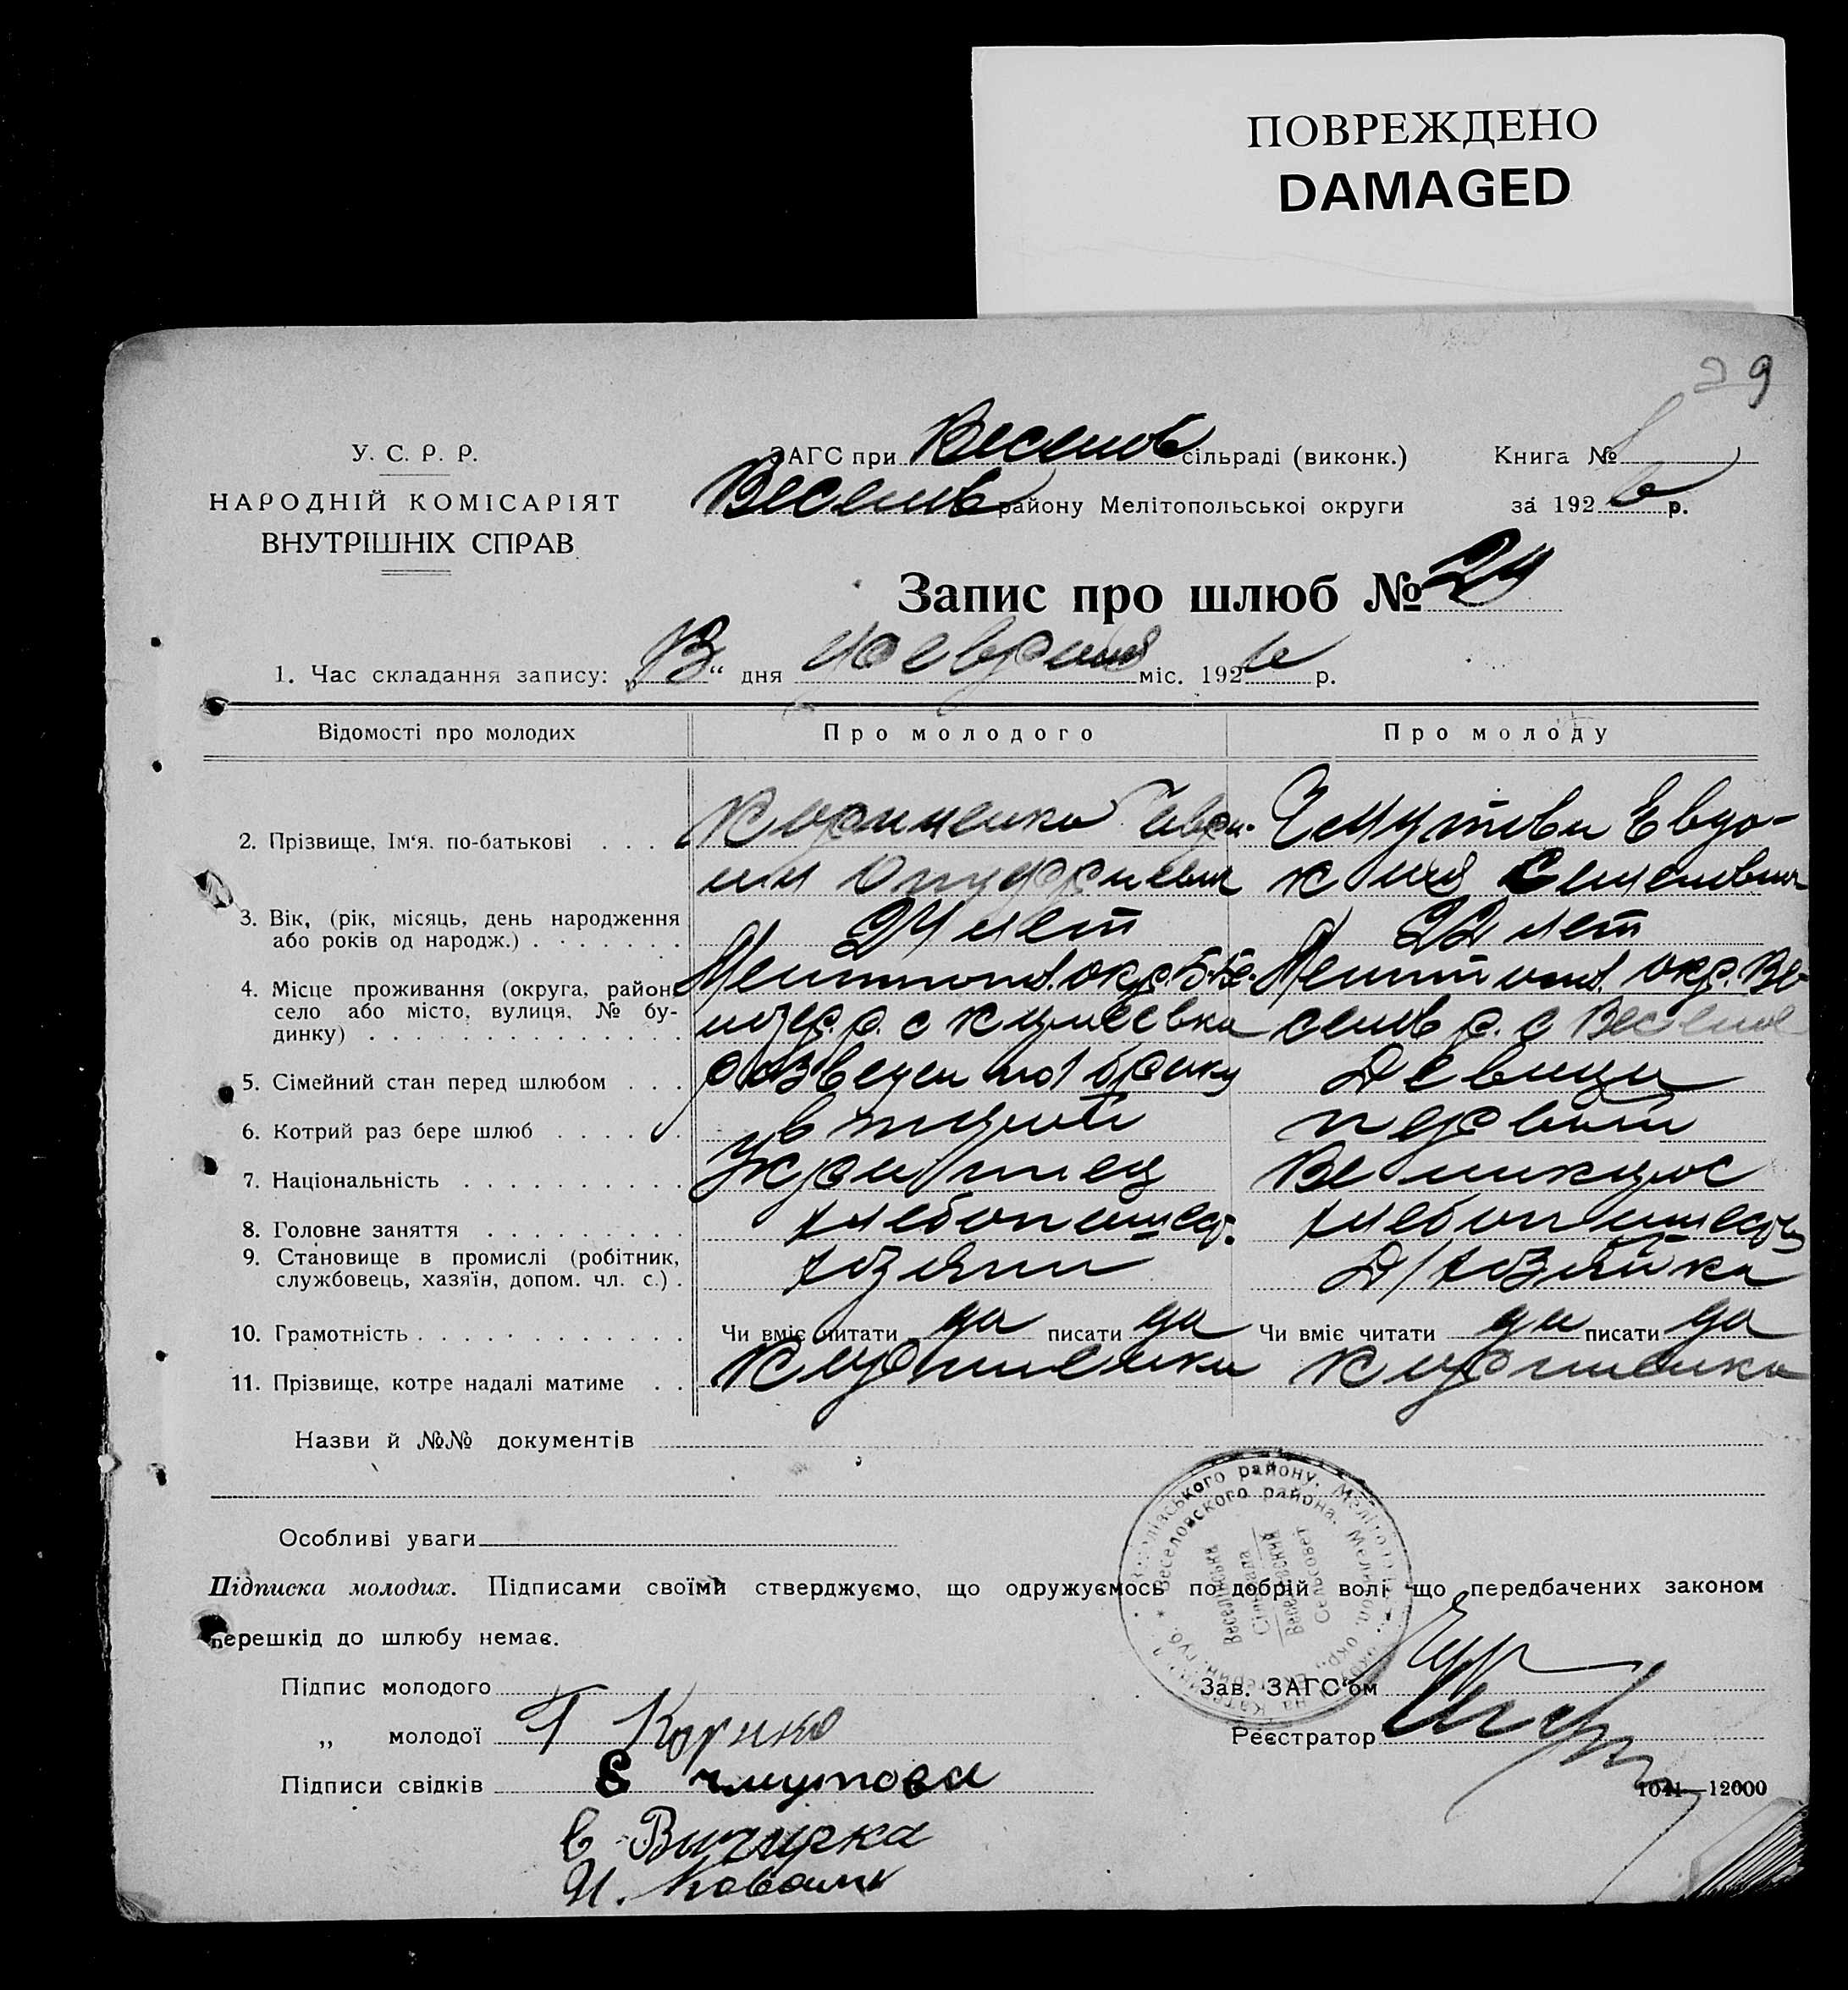 ПОВРЕЖДЕНО
DAMAGED
29
У. С. Р. Р.
НАРОДНІЙ КОМІСАРІЯТ
ВНУТРІШНІХ СПРАВ
ЗАГС при Веселов сільраді (виконк.)
Веселов району Мелітопольської округи
Книга №
за 1926 р.
Запис про шлюб № 24
1. Час складання запису: „ “ дня февраля міс. 1926 р.
Відомості про молодих Про молодого Про молоду
2. Прізвище, Ім‘я. по-батькові . . . . Гаври- Чмутова Евдо-
ил Онуфриевич кия Семеновна
3. Вік, (рік, місяць, день народження
або років од народж.) . . . . . . . 24 лет 22 лет
4. Місце проживання (округа, район,
село або місто, вулиця, № бу-
динку) . . . . . . . . . . . . . .
Мелитопол. окр. Б-Бе- Мелитопол. окр. Ве-
лозер. р. с селов р. с Веселое
5. Сімейний стан перед шлюбом . . . разведен по 1 браку Девица
6. Котрий раз бере шлюб . . . . . . второй первый
7. Національність . . . . . . . . . . Украинец Великорос
8. Головне заняття . . . . . . . . . хлебопашец. хлебопашец
9. Становище в промислі (робітник,
службовець, хазяїн, допом. чл. с.) . хозяин Д/хозяйка
10. Грамотність . . . . . . . . . . . . Чи вміє читати да писати да Чи вміє читати да писати да
11. Прізвище, котре надалі матиме . .
Назви й №№ документів
Особливі уваги
Підписка молодих. Підписами своїми стверджуємо, що одружуємось по добрій волі що передбачених законом
перешкід до шлюбу немає.
Підпис молодого
„ молодої Г
Підписи свідків Е Чмутова
И. Коваль
Зав. ЗАГС‘ом
Реєстратор
1041—12000
Веселівська
Сільрада
Веселовский
Сельсовет
Веселовского района. Мелитоп. окр.